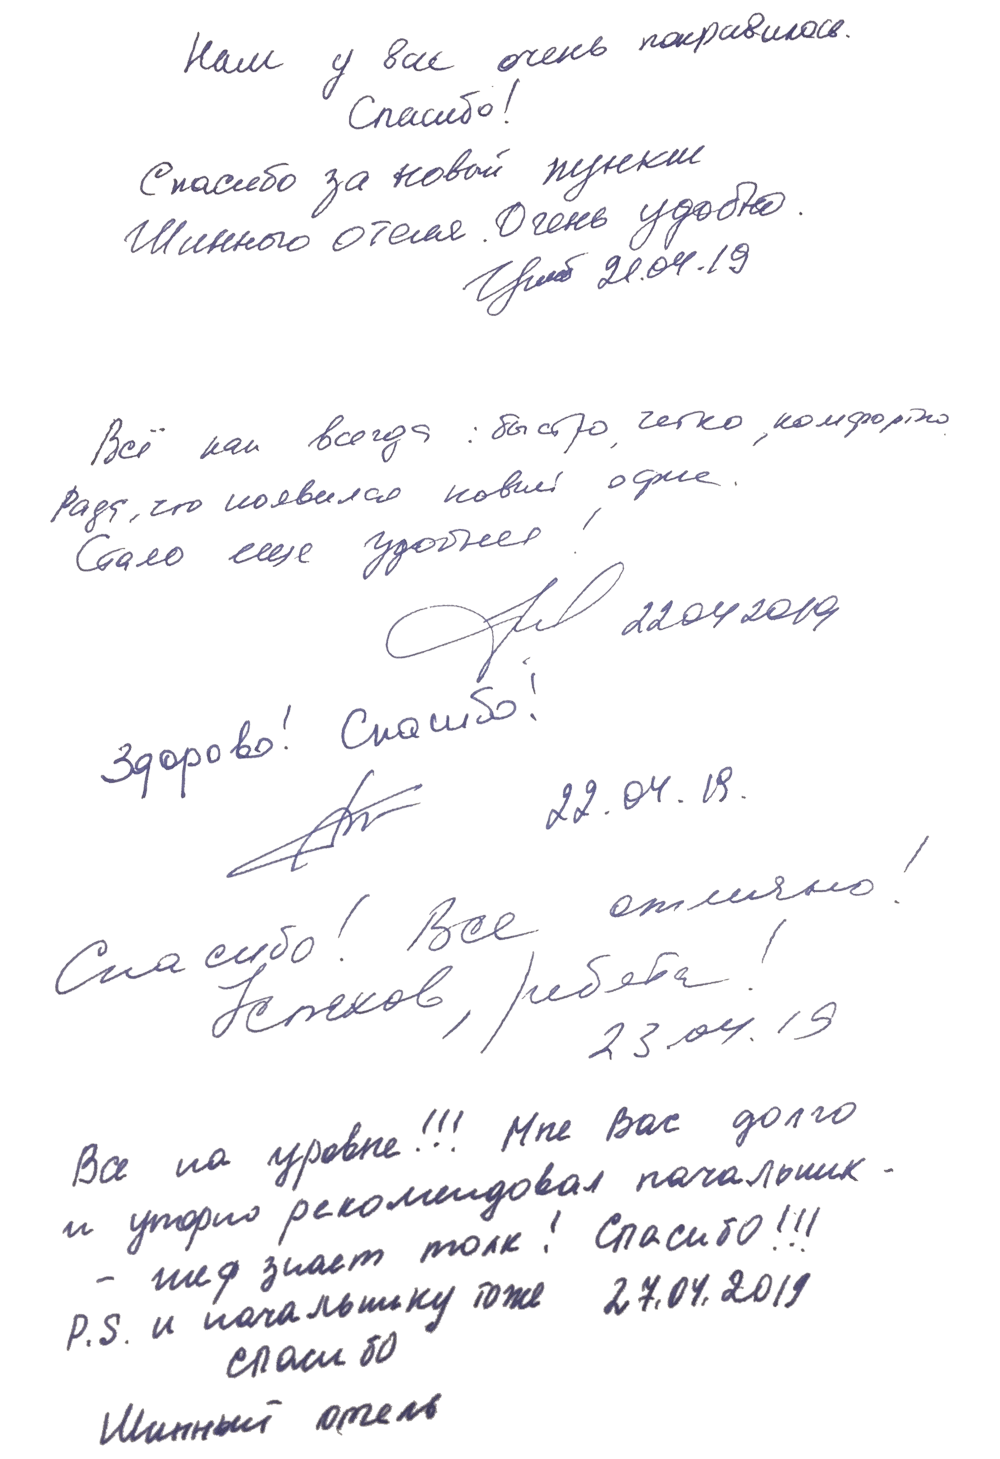 Нам у вас очень понравилось.
Спасибо!
Спасибо за новый пункт
Шинного отеля. Очень удобно.
21.04.19
Всё как всегда: быстро, четко, комфортно.
Рада, что появился новый офис.
Стало еще удобнее!
22 04 2019
Здорово! Спасибо!
22.04.19.
Спасибо! Все отлично!
Успехов, ребята!
23.04.19
Все на уровне!!! Мне Вас долго
и упорно рекомендовал начальник -
- шеф знает толк! Спасибо!!!
P.S. и начальнику тоже 27.04.2019
спасибо
Шинный отель